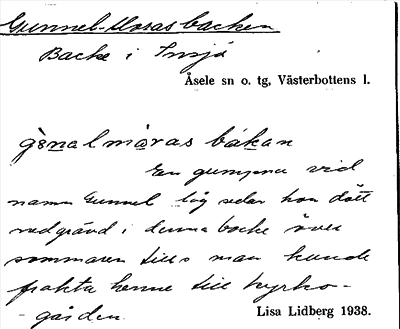 Gunnel-Moras backen
Backe i Insjö
Åsele sn o. tg, Västerbottens l.
gènalmòras bákan
En gumma vid
namn Gunnel låg sedan hon dött
nedgrävd i denna backe över
sommaren tills man kunde
frakta henne till kyrko-
-gården.
Lisa Lidberg 1938.